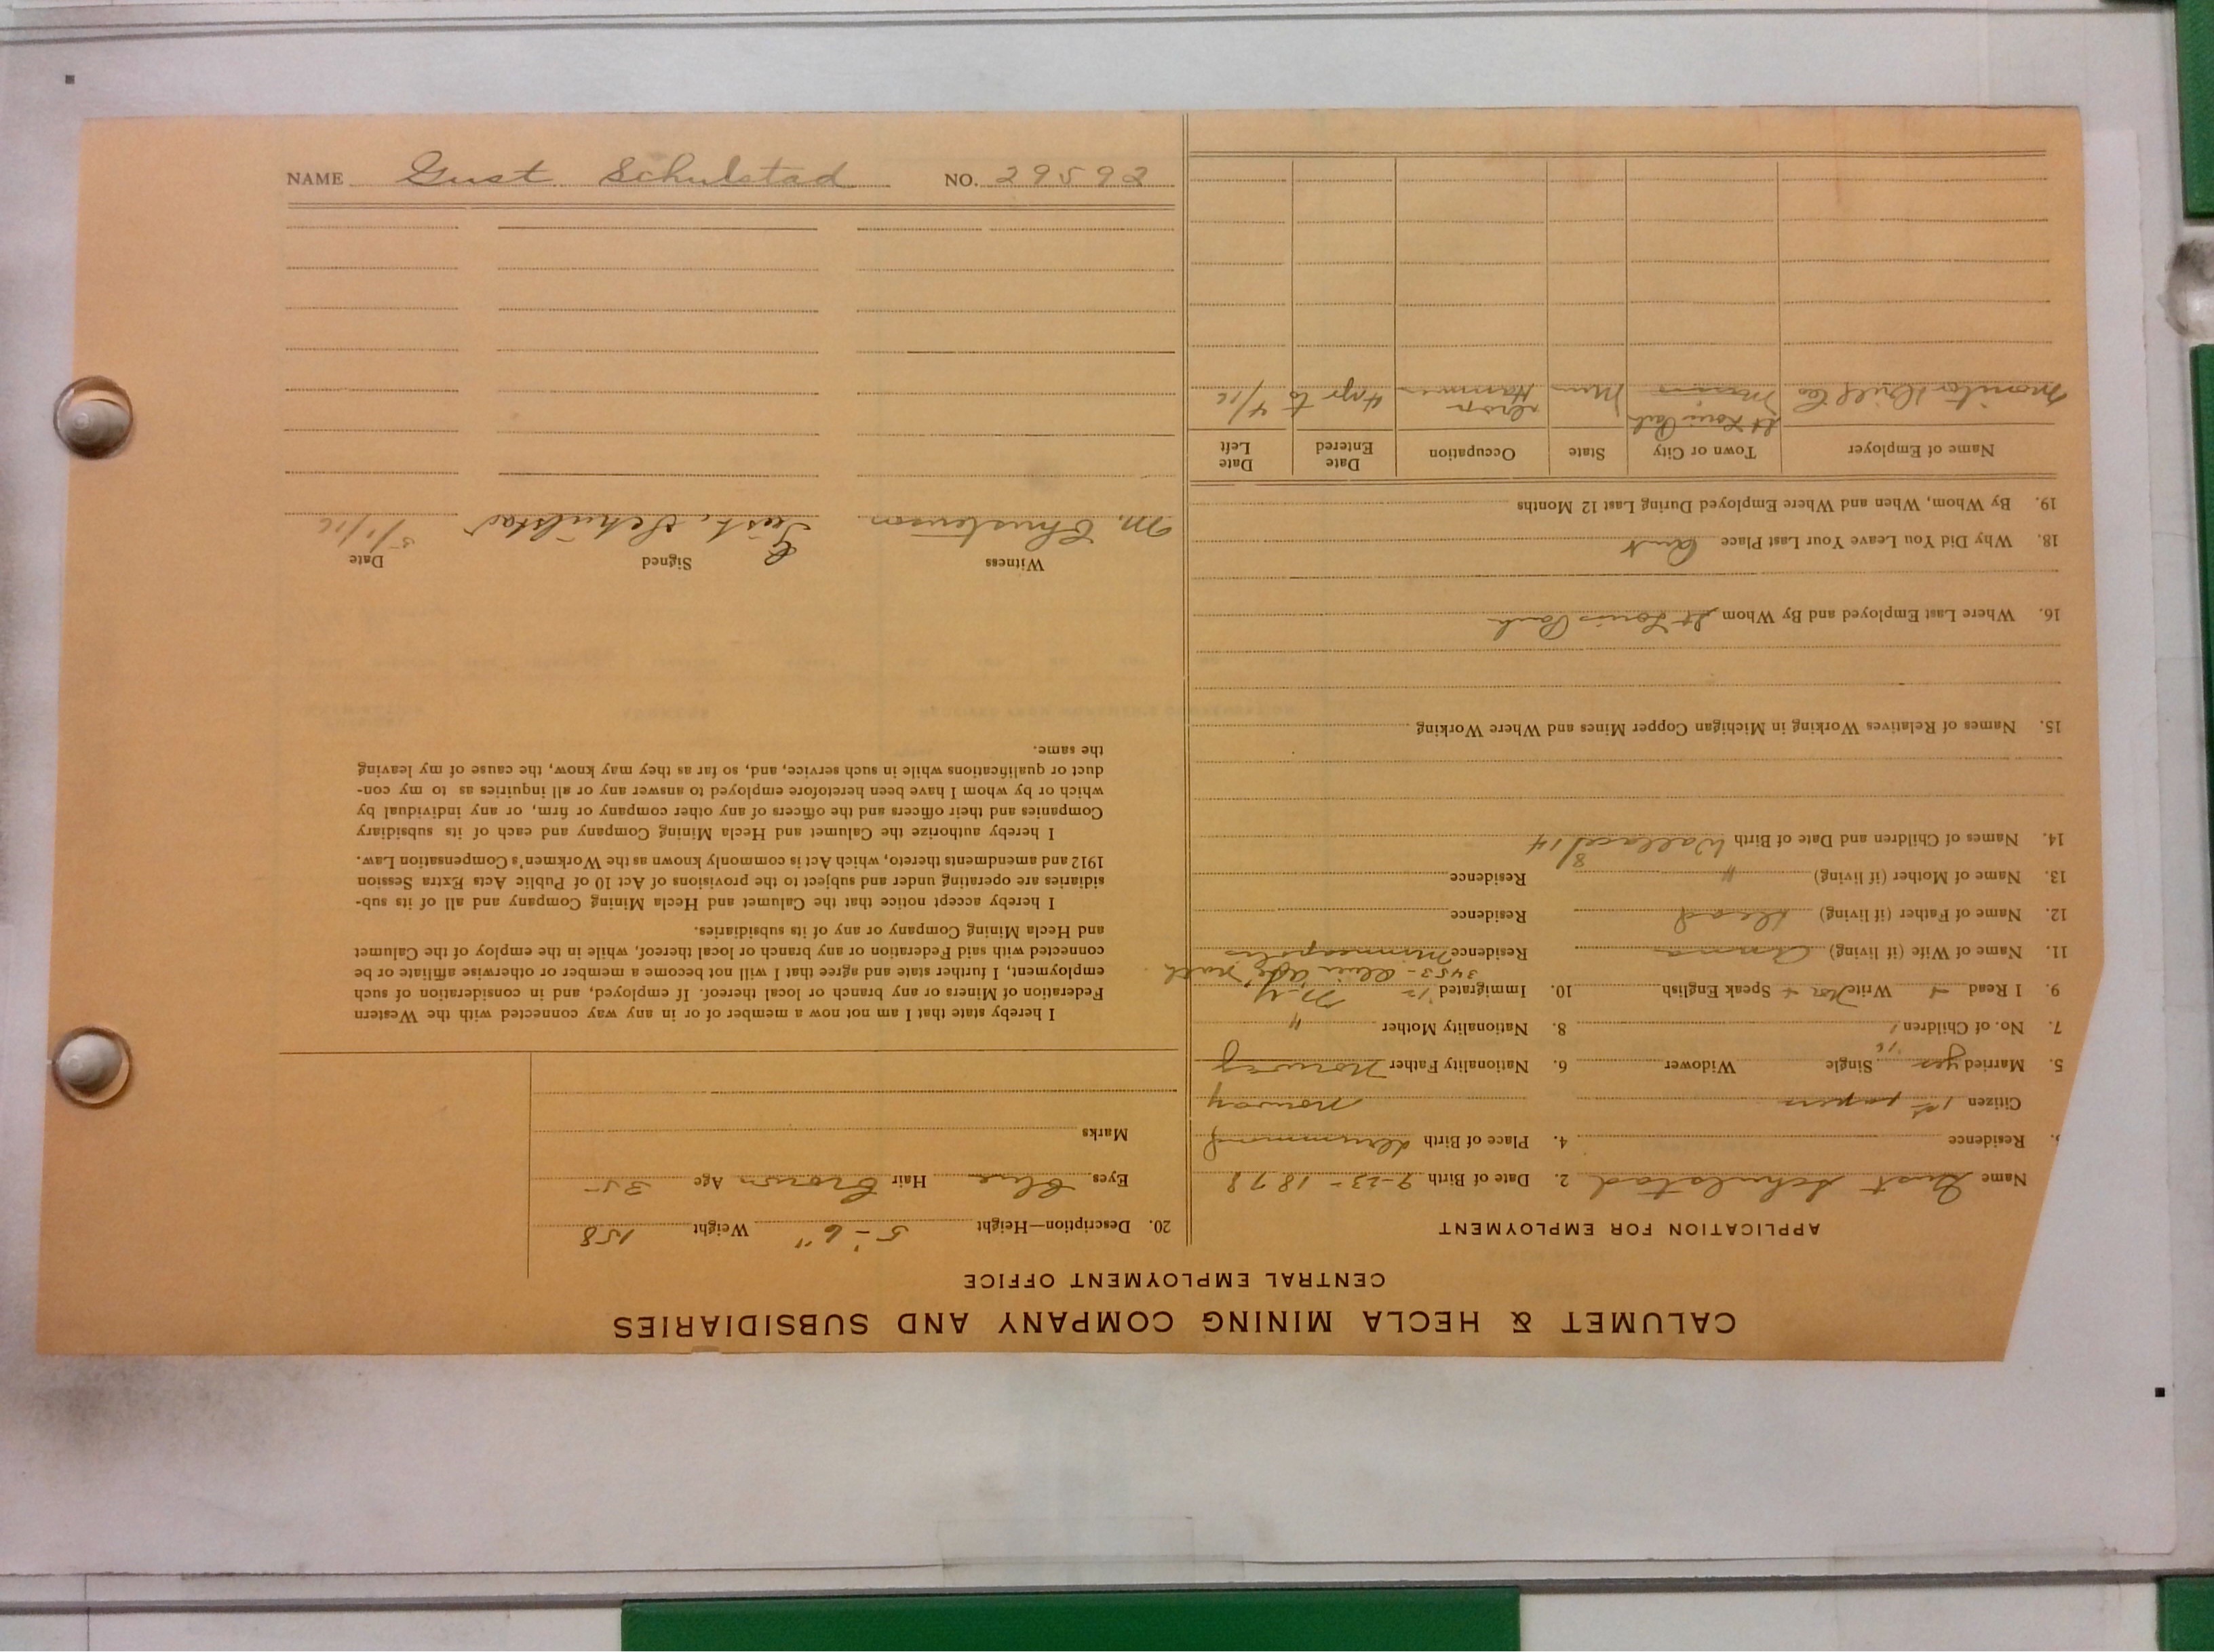 NAME Gust Schulstad NO. 29592
CALUMET & HECLA MINING COMPANY AND SUBSIDIARIES
CENTRAL EMPLOYMENT OFFICE
APPLICATION FOR EMPLOYMENT
Name Gust Schulstad 2. Date of Birth 9-23-1878
Residence 4. Place of Birth
Citizen 1st papers Norway
5. Married yes Single Widower 6. Nationality Father Norway
7. No. of Children 1 8. Nationality Mother "
9. I Read + Write Nor + Speak English 10. Immigrated N.Y.
3453-
11. Name of Wife (if living) Anna Residence Minneapolis
12. Name of Father (if living) dead Residence
13. Name of Mother (if living) " Residence
14. Names of Children and Date of Birth Wallace 8/14
15. Names of Relatives Working in Michigan Copper Mines and Where Working
16. Where Last Employed and By Whom St Louis Park
18. Why Did You Leave Your Last Place Quit
19. By Whom, When and Where Employed During Last 12 Months
Name of Employer Town or City State Occupation Date Entered Date Left
St Louis Park drop
Monitor Drill Co Minn Hammer 4 yr to 4/16
20. Description—Height 5-6" Weight 158
Eyes blue Hair Brown Age 35
Marks
I hereby state that I am not now a member of or in any way connected with the Western
Federation of Miners or any branch or local thereof. If employed, and in consideration of such
employment, I further state and agree that I will not become a member or otherwise affiliate or be
connected with said Federation or any branch or local thereof, while in the employ of the Calumet
and Hecla Mining Company or any of its subsidiaries.
I hereby accept notice that the Calumet and Hecla Mining Company and all of its sub-
sidiaries are operating under and subject to the provisions of Act 10 of Public Acts Extra Session
1912 and amendments thereto, which Act is commonly known as the Workmen's Compensation Law.
I hereby authorize the Calumet and Hecla Mining Company and each of its subsidiary
Companies and their officers and the officers of any other company or firm, or any individual by
which or by whom I have been heretofore employed to answer any or all inquiries as to my con-
duct or qualifications while in such service, and, so far as they may know, the cause of my leaving
the same.
Witness Signed Date
M. Christenson Gust. Schulstad 5/1/16